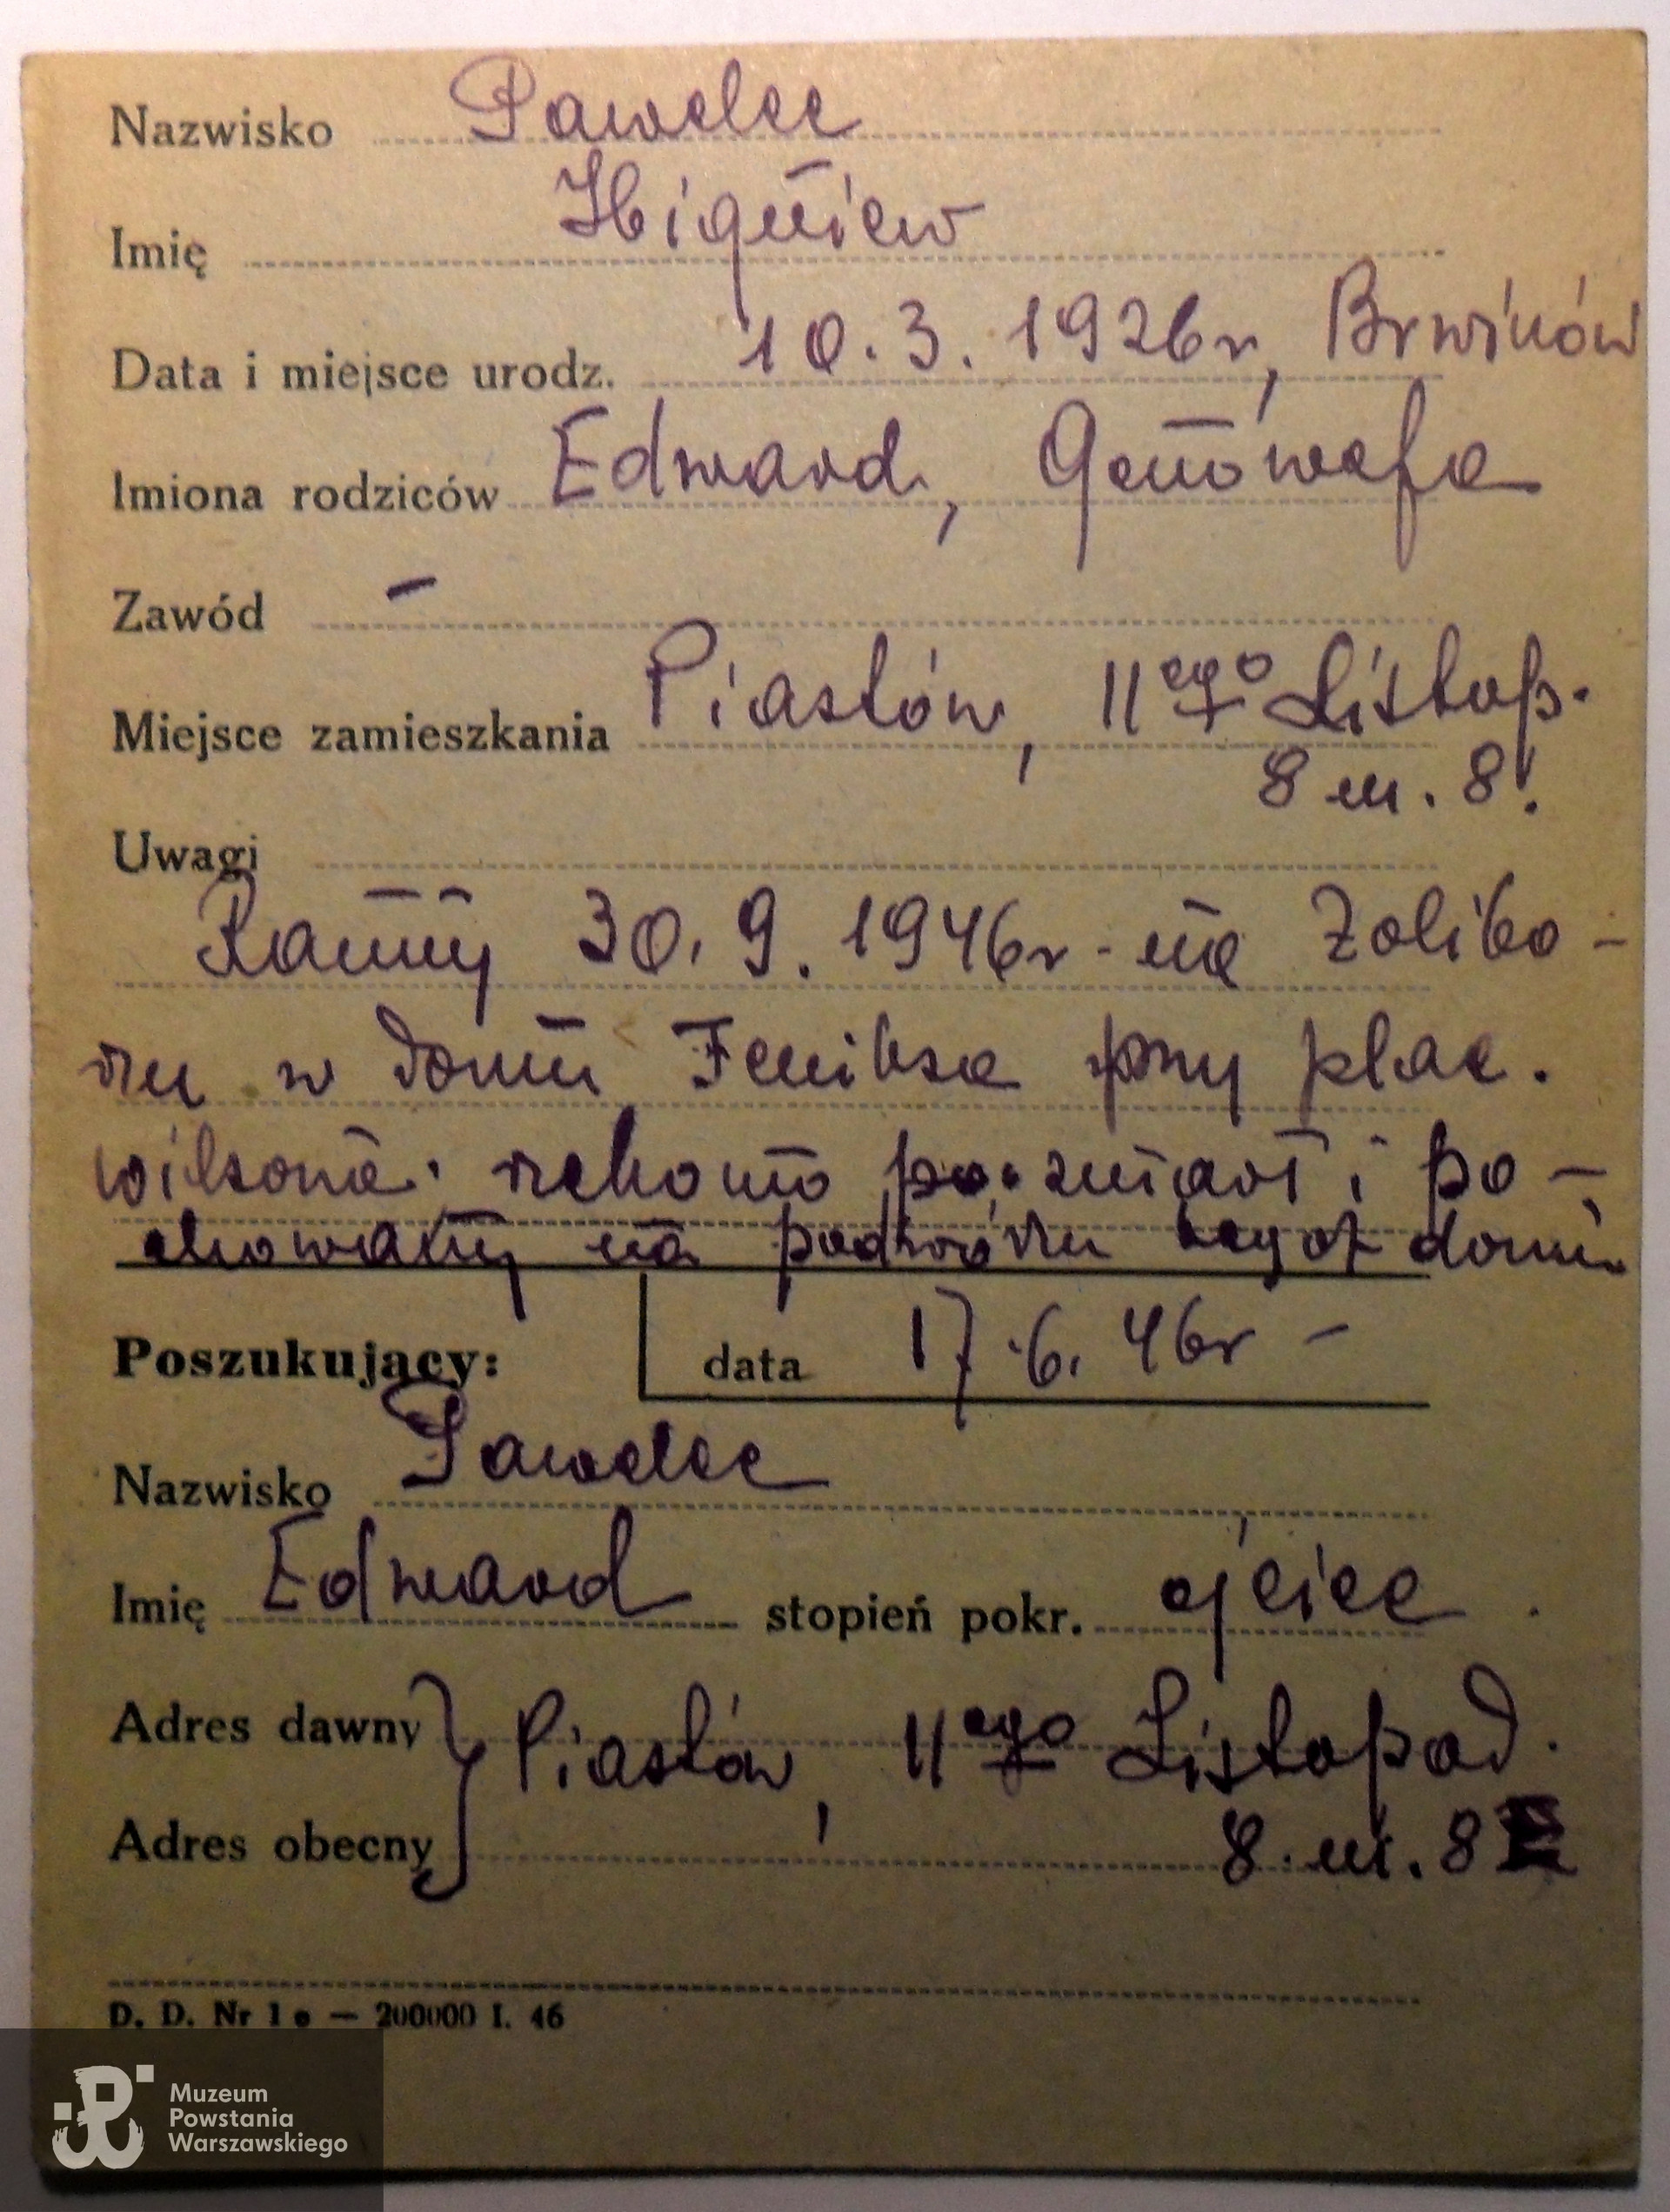 Nazwisko Pawelec
Imię Zbigniew
Data i miejsce urodz. 10.3.1926r, Brwinów
Imiona rodziców Edward, Genowefa
Zawód –
Miejsce zamieszkania Piastów, 11ego Listop.
8 m. 8.
Uwagi
Ranny 30.9.1946r - na Żolibo-
rzu w domu Feniksa przy plac.
Wilsona. rekomo zmarł i po-
chowany na podwórzu tegoż domu.
Poszukujący: data 17.6.46r –
Nazwisko Pawelec
Imię Edward stopień pokr. ojciec
Adres dawny } Piastów, 11ego Listopad.
Adres obecny 8 m. 8
D. D. Nr 1 e — 200000 I. 46
Muzeum
Powstania
Warszawskiego